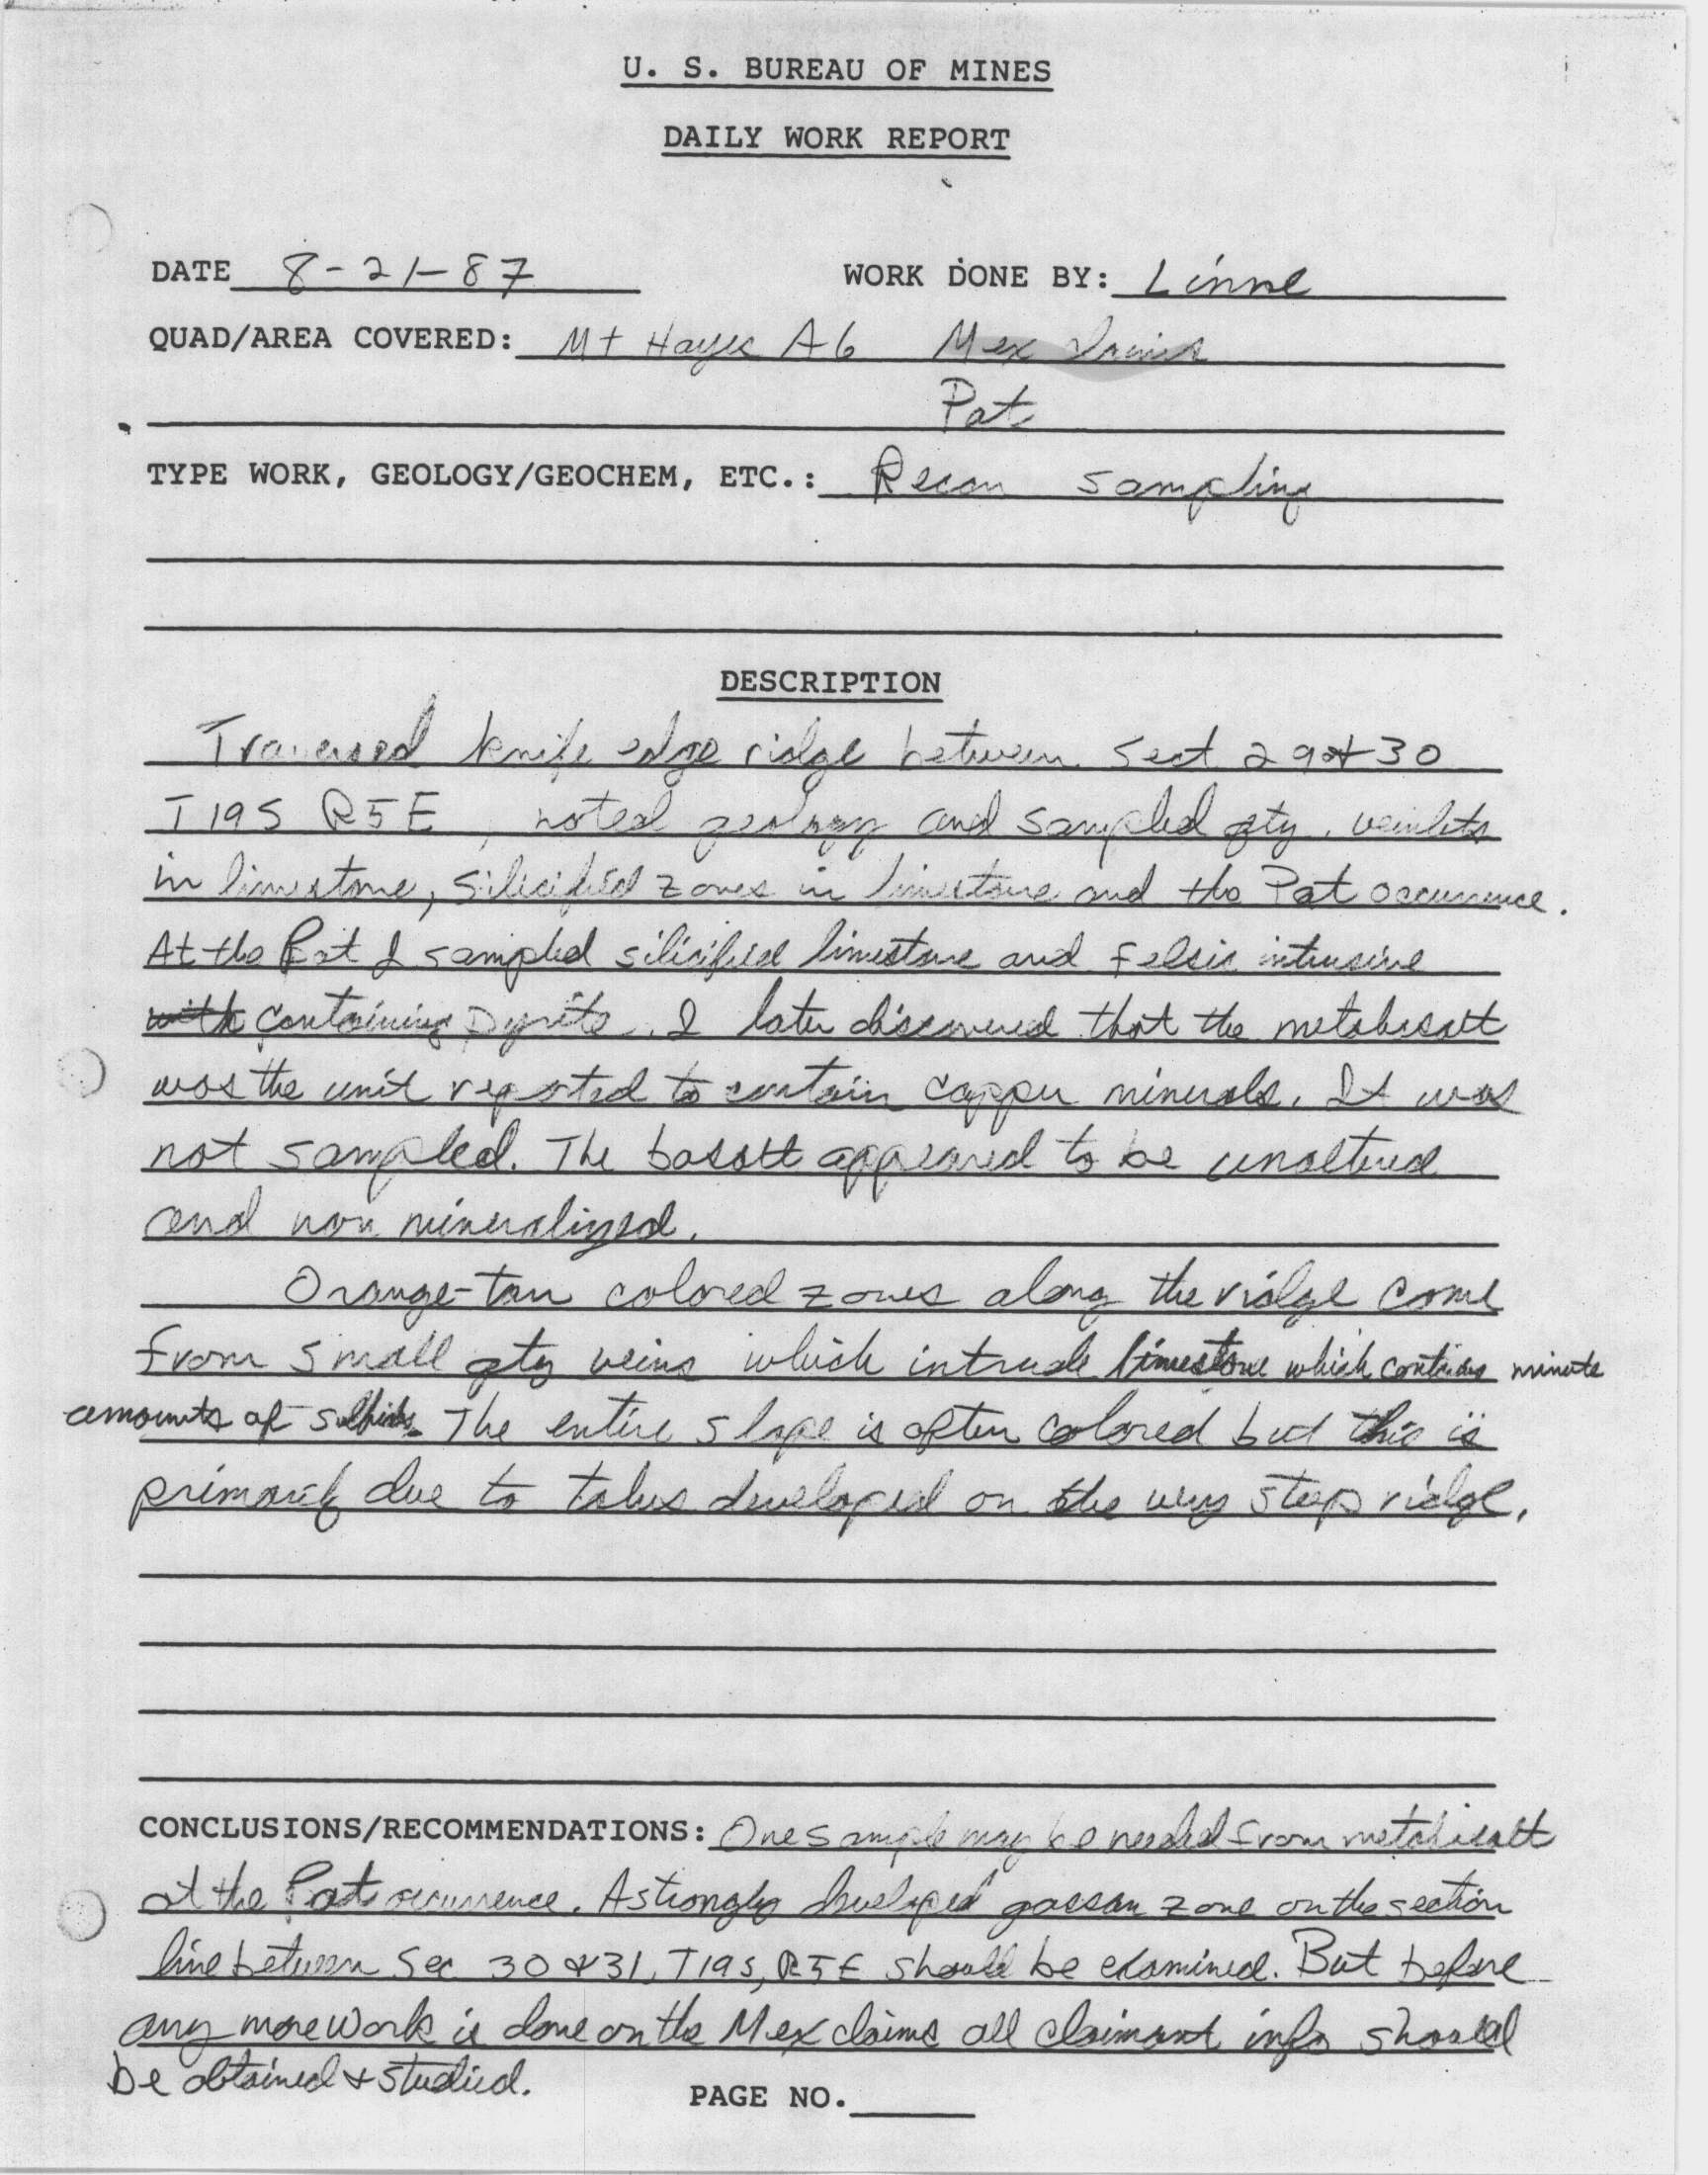 U. S. BUREAU OF MINES
DAILY WORK REPORT
DATE 8-21-87 WORK DONE BY: Linne
QUAD/AREA COVERED: Mt Hayes A6 Mex Claims
Pat
TYPE WORK, GEOLOGY/GEOCHEM, ETC.: Recon sampling
DESCRIPTION
Traversed knife edge ridge between Sect 29 & 30
T19S R5E, noted geology and sampled qtz. veinlets
in limestone, silicified zones in limestone and the Pat occurrence.
At the Pat I sampled silicified limestone and felsic intrusive
with containing pyrite. I later discovered that the metabasalt
was the unit reported to contain copper minerals. It was
not sampled. The basalt appeared to be unaltered
and non mineralized.
Orange-tan colored zones along the ridge come
from small qtz veins which intrude limestone which contains minute
amounts of sulfides. The entire slope is often colored but this is
primarily due to talus developed on the very steep ridge.
CONCLUSIONS/RECOMMENDATIONS: One sample may be needed from metabasalt
at the Pat occurrence. A strongly developed gossan zone on the section
line between Sec 30 & 31, T19S, R5E should be examined. But before
any more work is done on the Mex claims all claimant info should
be obtained & studied.
PAGE NO.